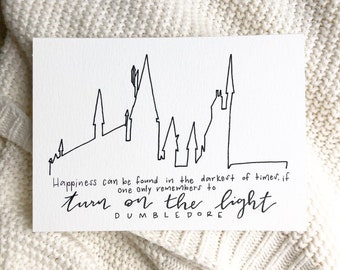 Happiness can be found in the darkest of times, if
one only remembers to
turn on the light
DUMBLEDORE